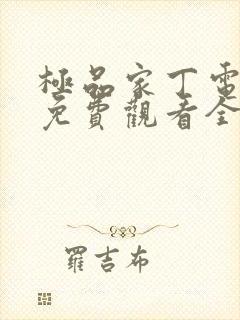 極品家丁電
免費觀看全
羅吉布